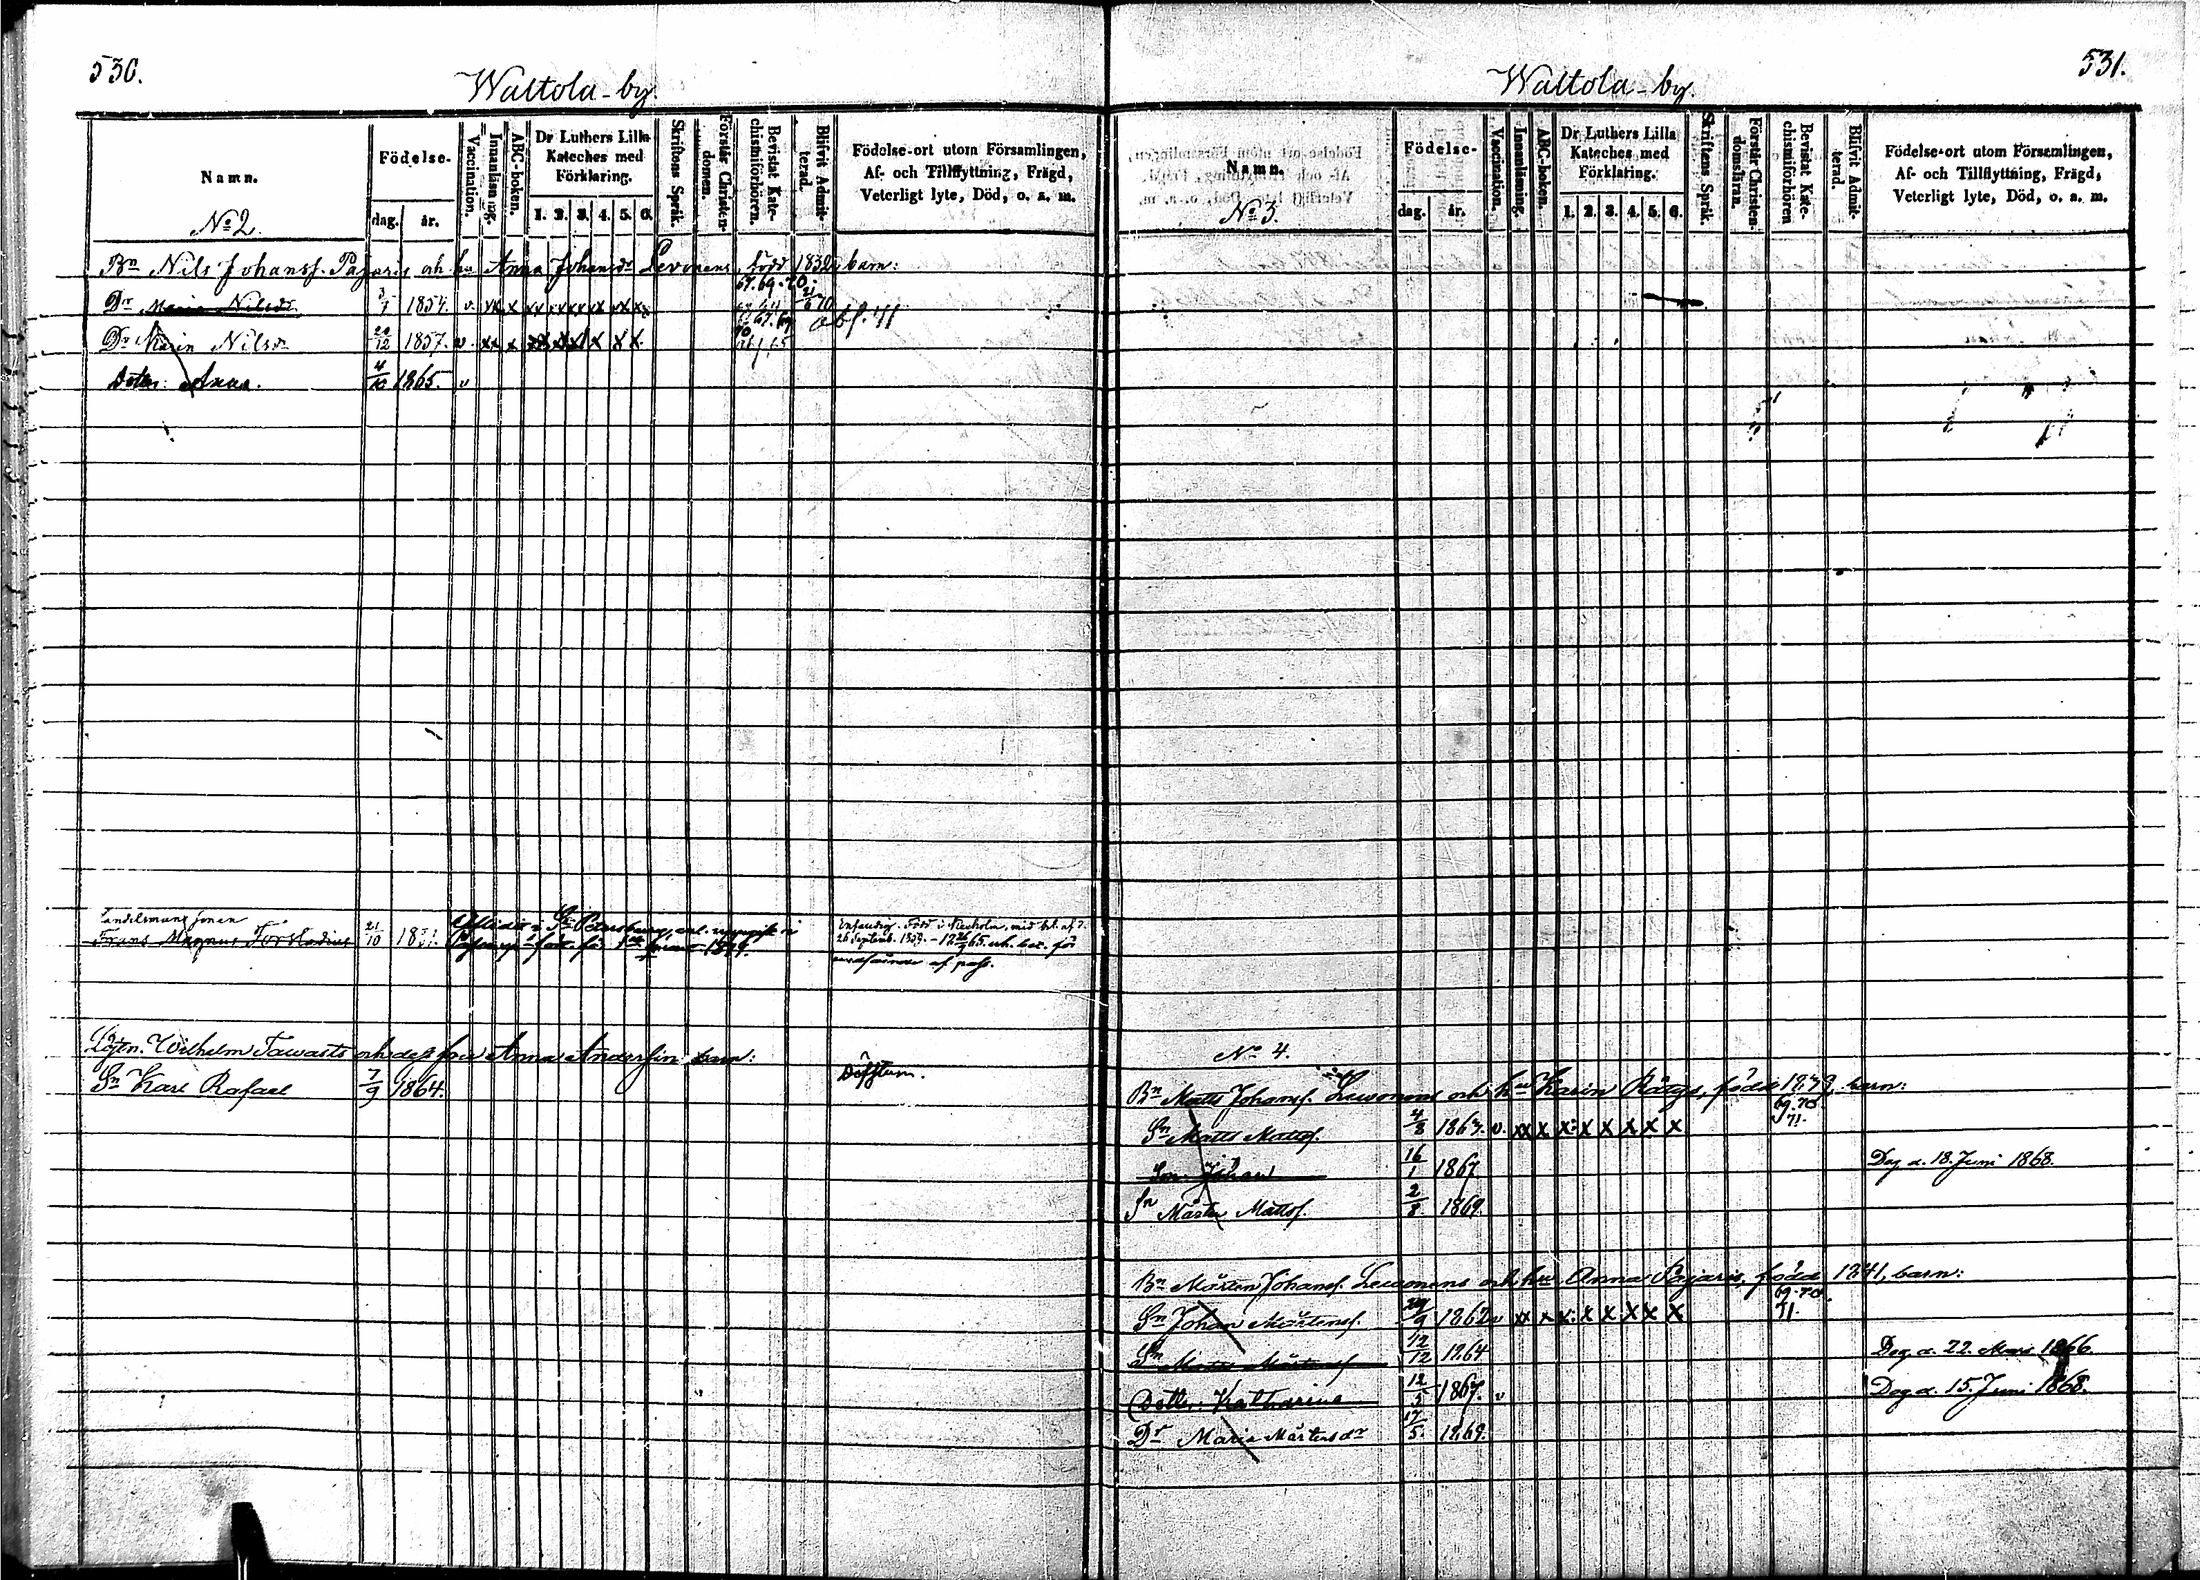 530.
Waltola-by.
Namn.
No 2.
Födelse-
dag. år.
Vaccination.
Innanläsning.
ABC-boken.
Dr Luthers Lilla Kateches med Förklaring.
1. 2. 3. 4. 5. 6.
Skriftens Språk.
Förstår Christendomen.
Bevistat Katechismiförhören.
Blifvit Admitterad.
Födelse-ort utom Församlingen,
Af- och Tillflyttning, Frägd,
Veterligt lyte, Död, o. s. m.
Bn Nils Johansf. Pajaris och hu Anna Johansdr Levonens, född 1832, barn:
67. 69. 70.
Dr Maria Nilsdr 3/1 1854. v. xx x xx xx xx xx xx xx
Dr Karin Nilsdr 20/12 1857. v xx x
abf. 71
Dotter Anna. 4/10 1865. v
Länsmans sonen
Frans Magnus Forstadius 21/10
26 Septemb. 1859.
af pass.
Löjtn. Wilhelm Tawasts och dess fru Anna Andersin barn:
Sn Karl Rafael 7/9 1864.
531.
Waltola-by.
Namn.
No 3.
Födelse-
dag. år.
Vaccination.
Innanläsning.
ABC-boken.
Dr Luthers Lilla Kateches med Förklaring.
1. 2. 3. 4. 5. 6.
Skriftens Språk.
Förstår Christendomsläran.
Bevistat Katechismiförhören
Blifvit Admitterad.
Födelse-ort utom Församlingen,
Af- och Tillflyttning, Frägd,
Veterligt lyte, Död, o. s. m.
No 4.
Bn Matts Johansf. Lewonens och hu Karin Rätys, född barn:
69. 70.
71.
Sn Matts Mattsf. 4/8 v. xx x x x x x x x
Son Johan 16/1 1867 Dog d. 18. Juni 1868.
Sn Mårten Mattsf. 2/8 1869.
Bn Mårten Johansf. Lewonens och hu Anna Pajaris, född 1841, barn:
69. 70.
71.
Sn Johan Mårtensf. 1862 v xx x x x x x x x
Sn Mårtensf 12/12 1864 Dog d. 22. Mars 1866.
Dotter Katharina 12/5 1867. v Dog d. 15. Juni 1868.
Dr Maria Mårtensdr 17/5 1869.